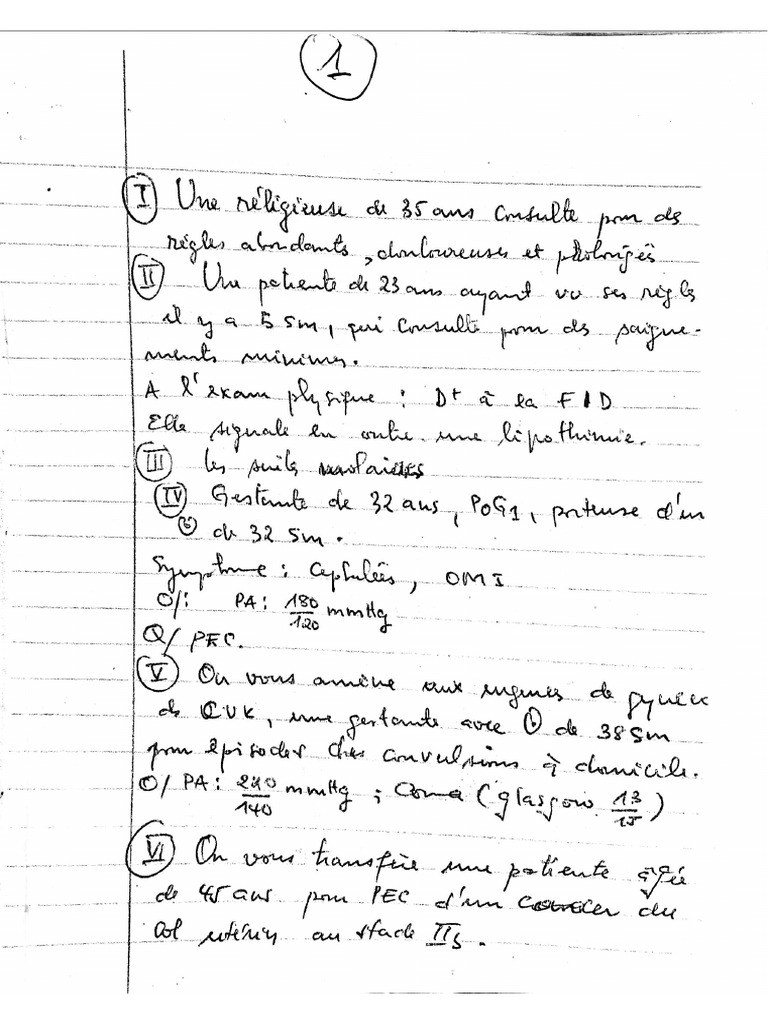 1
I Une réligieuse de 35 ans consulte pour des
règles abondants, douloureuses et prolongés
II Une patiente de 23 ans ayant vu ses règles
il y a 5 sm, qui consulte pour des saigne-
ments minimes.
A l'exam physique : D+ à la FID
Elle signale en outre une lipothimie.
III les suites molaires
IV Gestante de 32 ans, P0G1, porteuse d'un
de 32 Sm.
Symptome : Cephalées, OMI
O/: PA: 180/120 mmHg
Q/ PEC.
V On vous amène aux urgences de gynéco
de CUK, une gestante avec de 38 Sm
pour épisodes des convulsions à domicile.
O/ PA: 210/140 mmHg ; Coma (glasgow 13/15)
VI On vous transfère une patiente agée
de 45 ans pour PEC d'un cancer du
col utérin au stade